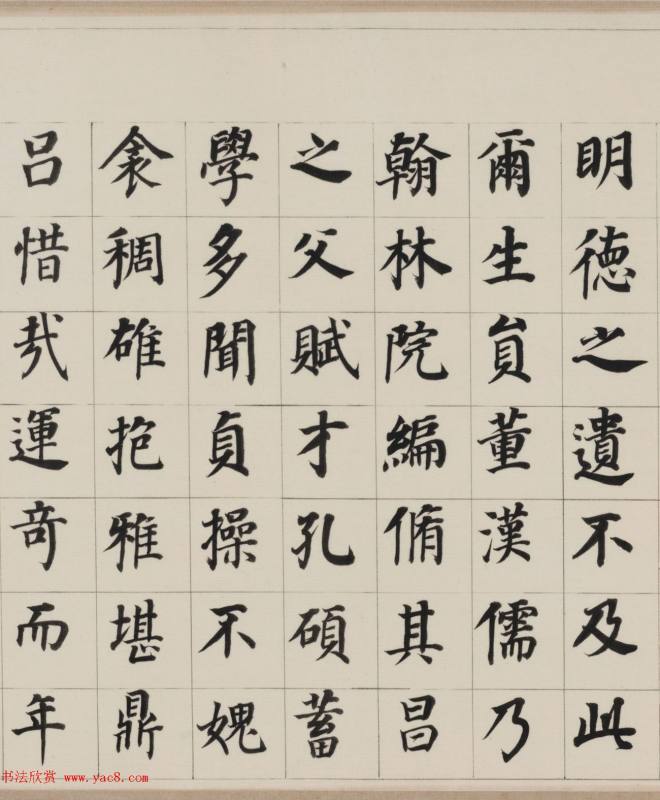 明徳之遺不及此
爾生貟董漢儒乃
翰林院編脩其昌
之父賦才孔碩蓄
學多聞貞操不媿
衾稠雄抱雅堪鼎
呂惜哉運竒而年
书法欣赏 www.yac8.com